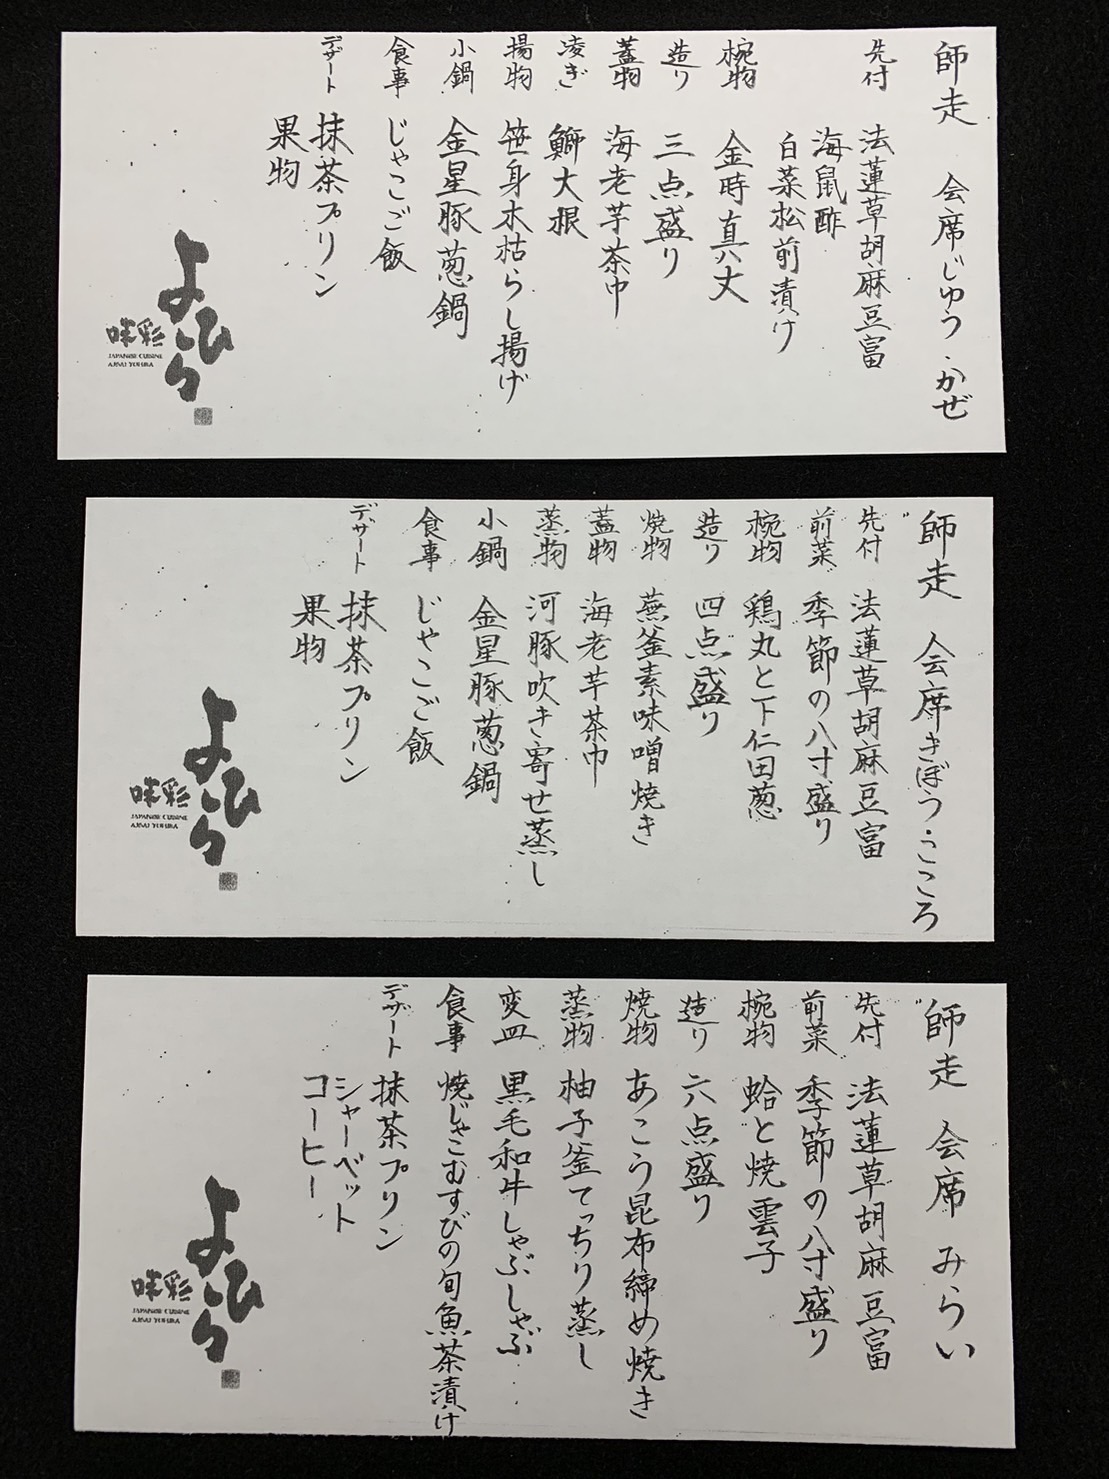 師走 会席じゆう・かぜ
先付 法蓮草胡麻豆富
海鼠酢
白菜松前漬け
椀物 金時真丈
造り 三点盛り
蓋物 海老芋茶巾
凌ぎ 鰤大根
揚物 笹身木枯らし揚げ
小鍋 金星豚葱鍋
食事 じゃこご飯
デザート 抹茶プリン
果物
よひら
彩味
JAPANESE CUISINE
AJISAI YOHIRA
師走 会席きぼう・こころ
先付 法蓮草胡麻豆富
前菜 季節の八寸盛り
椀物 鶏丸と下仁田葱
造り 四点盛り
焼物 蕪釜素味噌焼き
蓋物 海老芋茶巾
蒸物 河豚吹き寄せ蒸し
小鍋 金星豚葱鍋
食事 じゃこご飯
デザート 抹茶プリン
果物
よひら
彩味
JAPANESE CUISINE
AJISAI YOHIRA
師走 会席 みらい
先付 法蓮草胡麻豆富
前菜 季節の八寸盛り
椀物 蛤と焼雲子
造り 六点盛り
焼物 あこう昆布締め焼き
蒸物 柚子釜てっちり蒸し
変皿 黒毛和牛しゃぶしゃぶ
食事 焼じゃこむすびの旬魚茶漬け
デザート 抹茶プリン
シャーベット
コーヒー
よひら
彩味
JAPANESE CUISINE
AJISAI YOHIRA